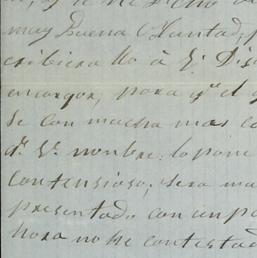 muy Buena Voluntad,
cribiera Uo à
encargos, para q.e el
se con mucha mas
nombre: lo pone
contensioso; sera ma
presentado con un po
hora no he contestad